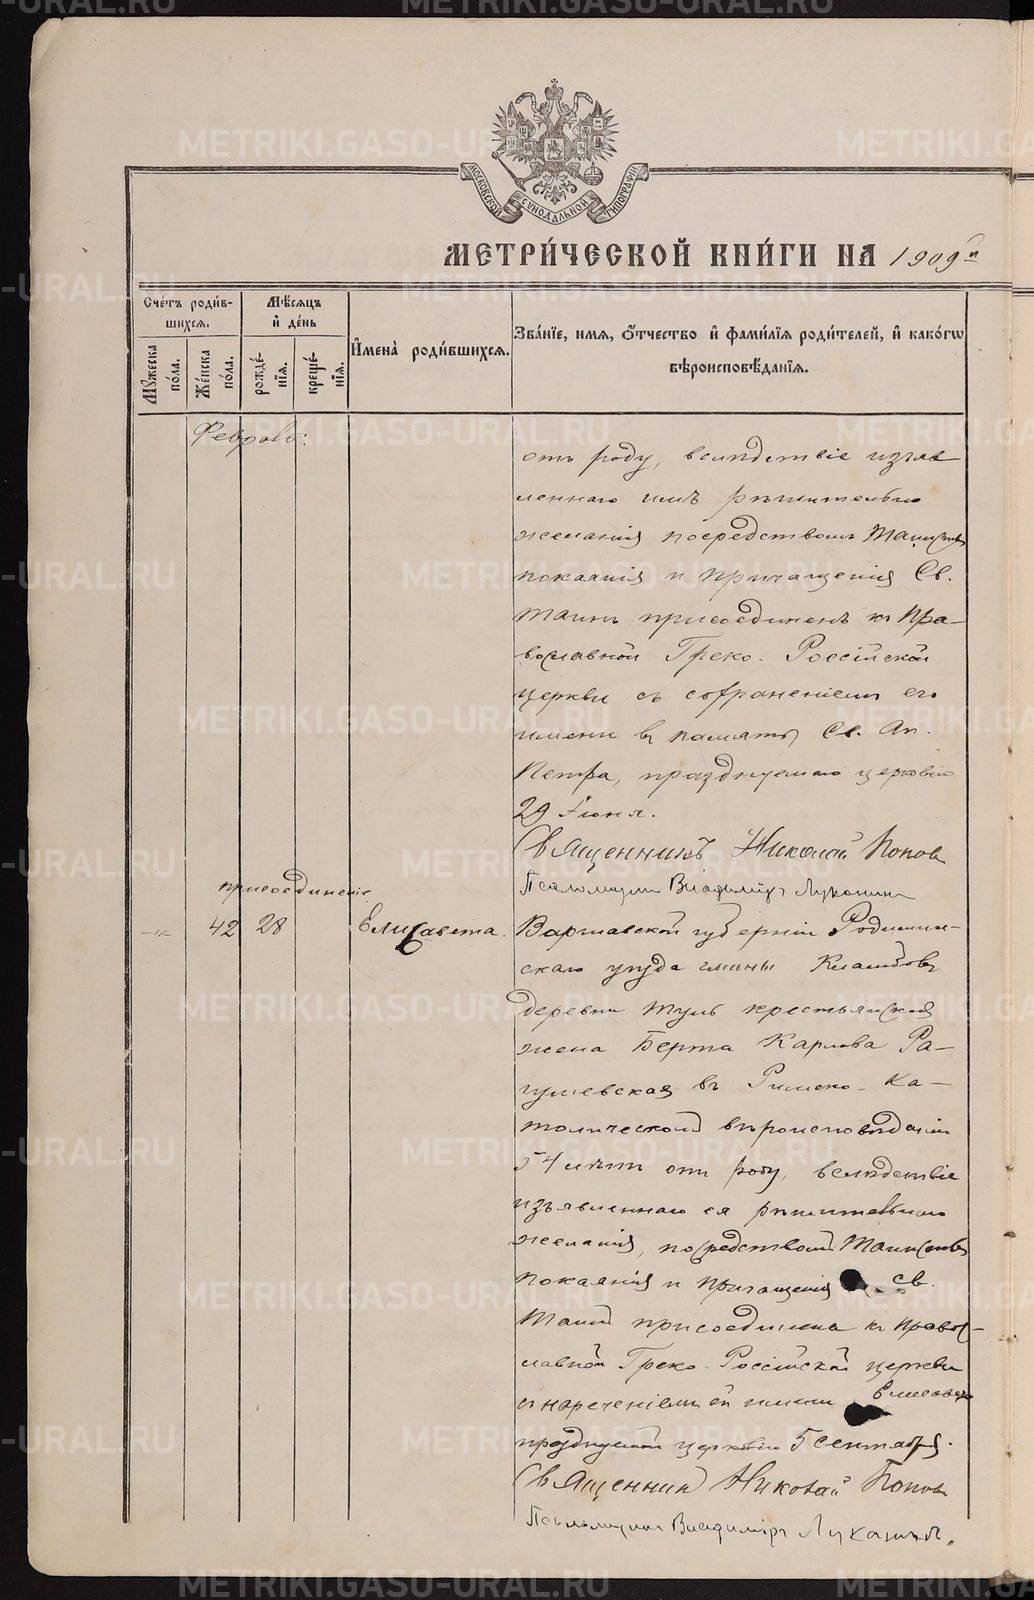 МОСКОВСКОЙ СѴНОДАЛЬНОЙ ТИПОГРАФІИ
МЕТРИ́ЧЕСКОЙ КНИ́ГИ НА 1909 й
Сче́тъ роди́вшихся.
Мѣ́сяцъ и҆ де́нь
И҆мена̀ роди́вшихся.
Зва́нїе, имя, ѻ҆́тчество и҆ фами́лїя роди́телей, и҆ како́гѡ вѣроисповѣ́данїя.
Мꙋ́жеска по́ла.
Же́нска по́ла.
рожде́нїя.
креще́нїя.
Февраль:
отъ роду, вслѣдствіе изъяв
леннаго имъ рѣшительнаго
желанія посредствомъ Таинствъ
покаянія и причащенія Св.
Таинъ присоединенъ къ Пра-
вославной Греко-Россійской
церкви съ сохраненіемъ его
имени въ память Св. Ап.
Петра, празднуемаго церковію
29 Іюня.
Священникъ Николай Попов
Псаломщик Владиміръ Луканин
присоединеніе
-„- 42 28 Елисавета.
Варшавской губерніи Радимин-
скаго уѣзда гмины
деревни крестьянская
жена Берта Карлова Ра-
въ Римско-Ка-
толическомъ вѣроисповѣданіи
54 лѣтъ отъ роду, вслѣдствіе
изъявленнаго ея рѣшительнаго
желанія, посредствомъ Таинствъ
покаянія и причащенія св.
Таинъ присоединена къ Правос-
лавной Греко-Россійской церкви
съ нареченіемъ ей имени Елисавета
празднуемой церковію 5 сентября.
Священник Николай Попов
Псаломщик Владиміръ Луканинъ.
METRIKI.GASO-URAL.RU